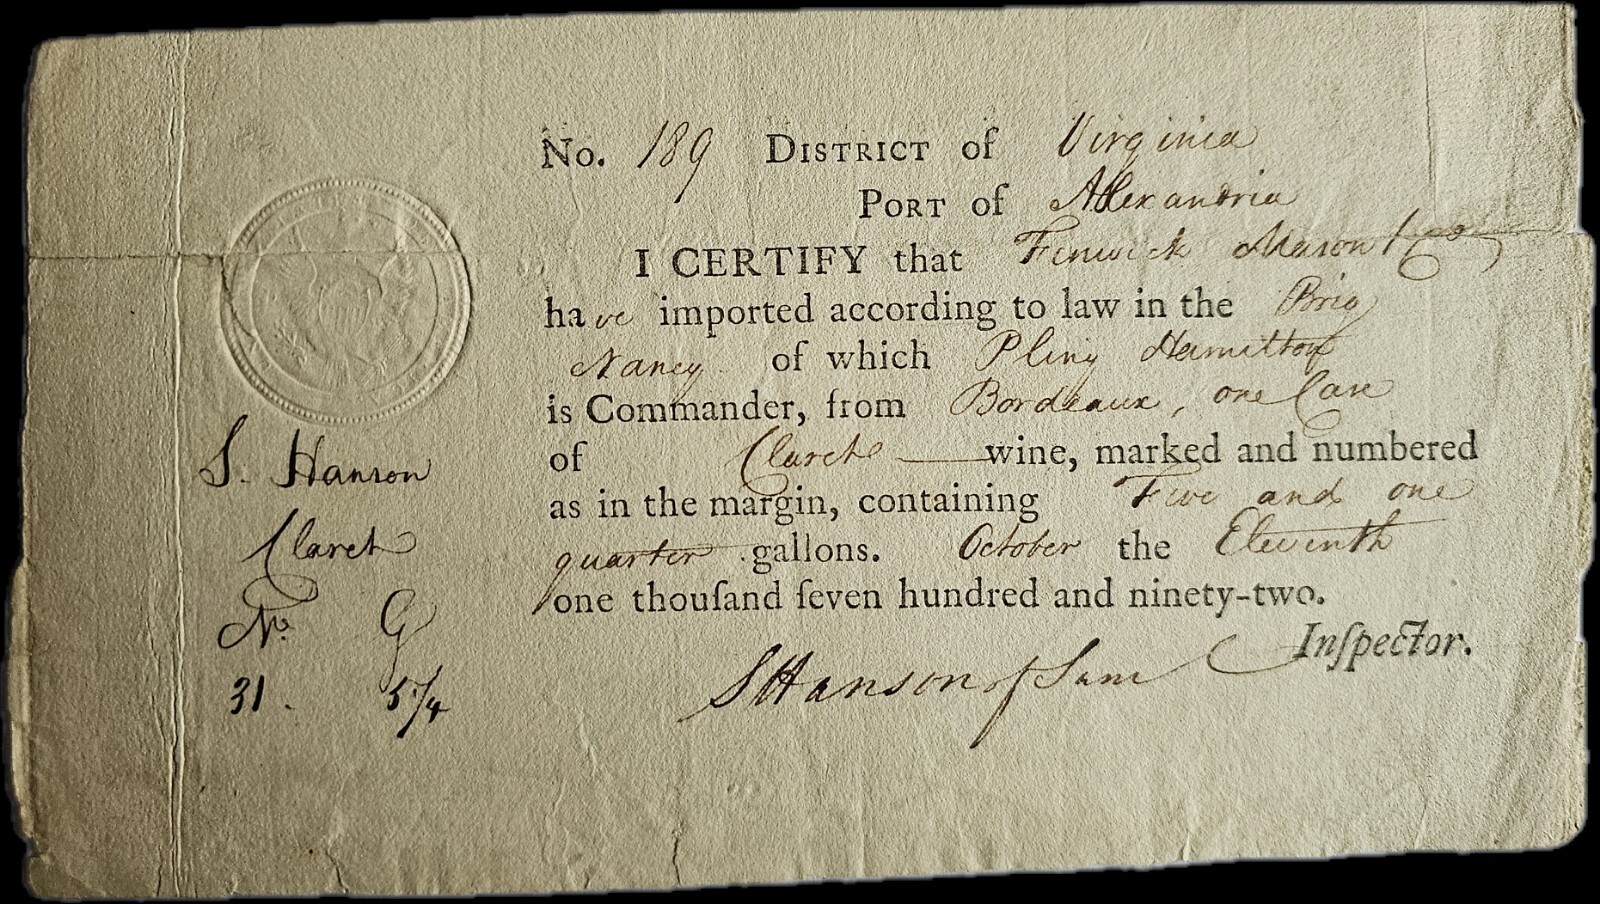 No. 189 DISTRICT of Virginia
PORT of Alexandria
I CERTIFY that Fenwick Mason & Co
have imported according to law in the Brig
Nancy of which Pliny Hamilton
is Commander, from Bordeaux, one Case
of Claret wine, marked and numbered
as in the margin, containing Five and one
quarter gallons. October the Eleventh
one thouſand ſeven hundred and ninety-two.
Inſpector.
SHanson of Sam
S. Hanson
Claret
No. G
31. 5 1/4